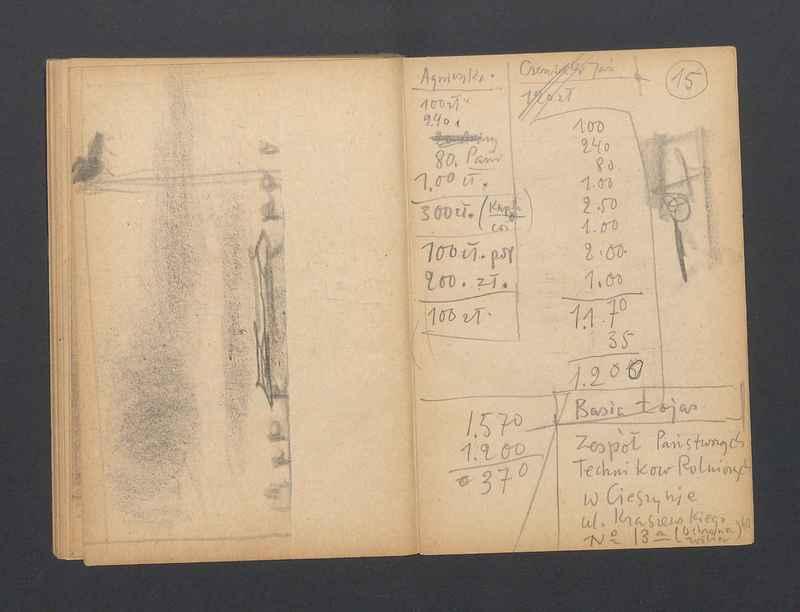 15
Agnieszka.
100 zł.
240,
80. Pani
1.00 zł.
300 zł. (
coś
100 zł. poż
200. zł.
100 zł.
Jaś
120 zł
100
240
80
1.00
2.50
1.00
2.00
1.00
1.170
35
1.200
1.570
1.200
370
Basia Łojas
Zespół Państwowych
Techników Rolniczych
w Cieszynie
ul. Kraszewskiego
Nº 13a (Ochrona
roślin)